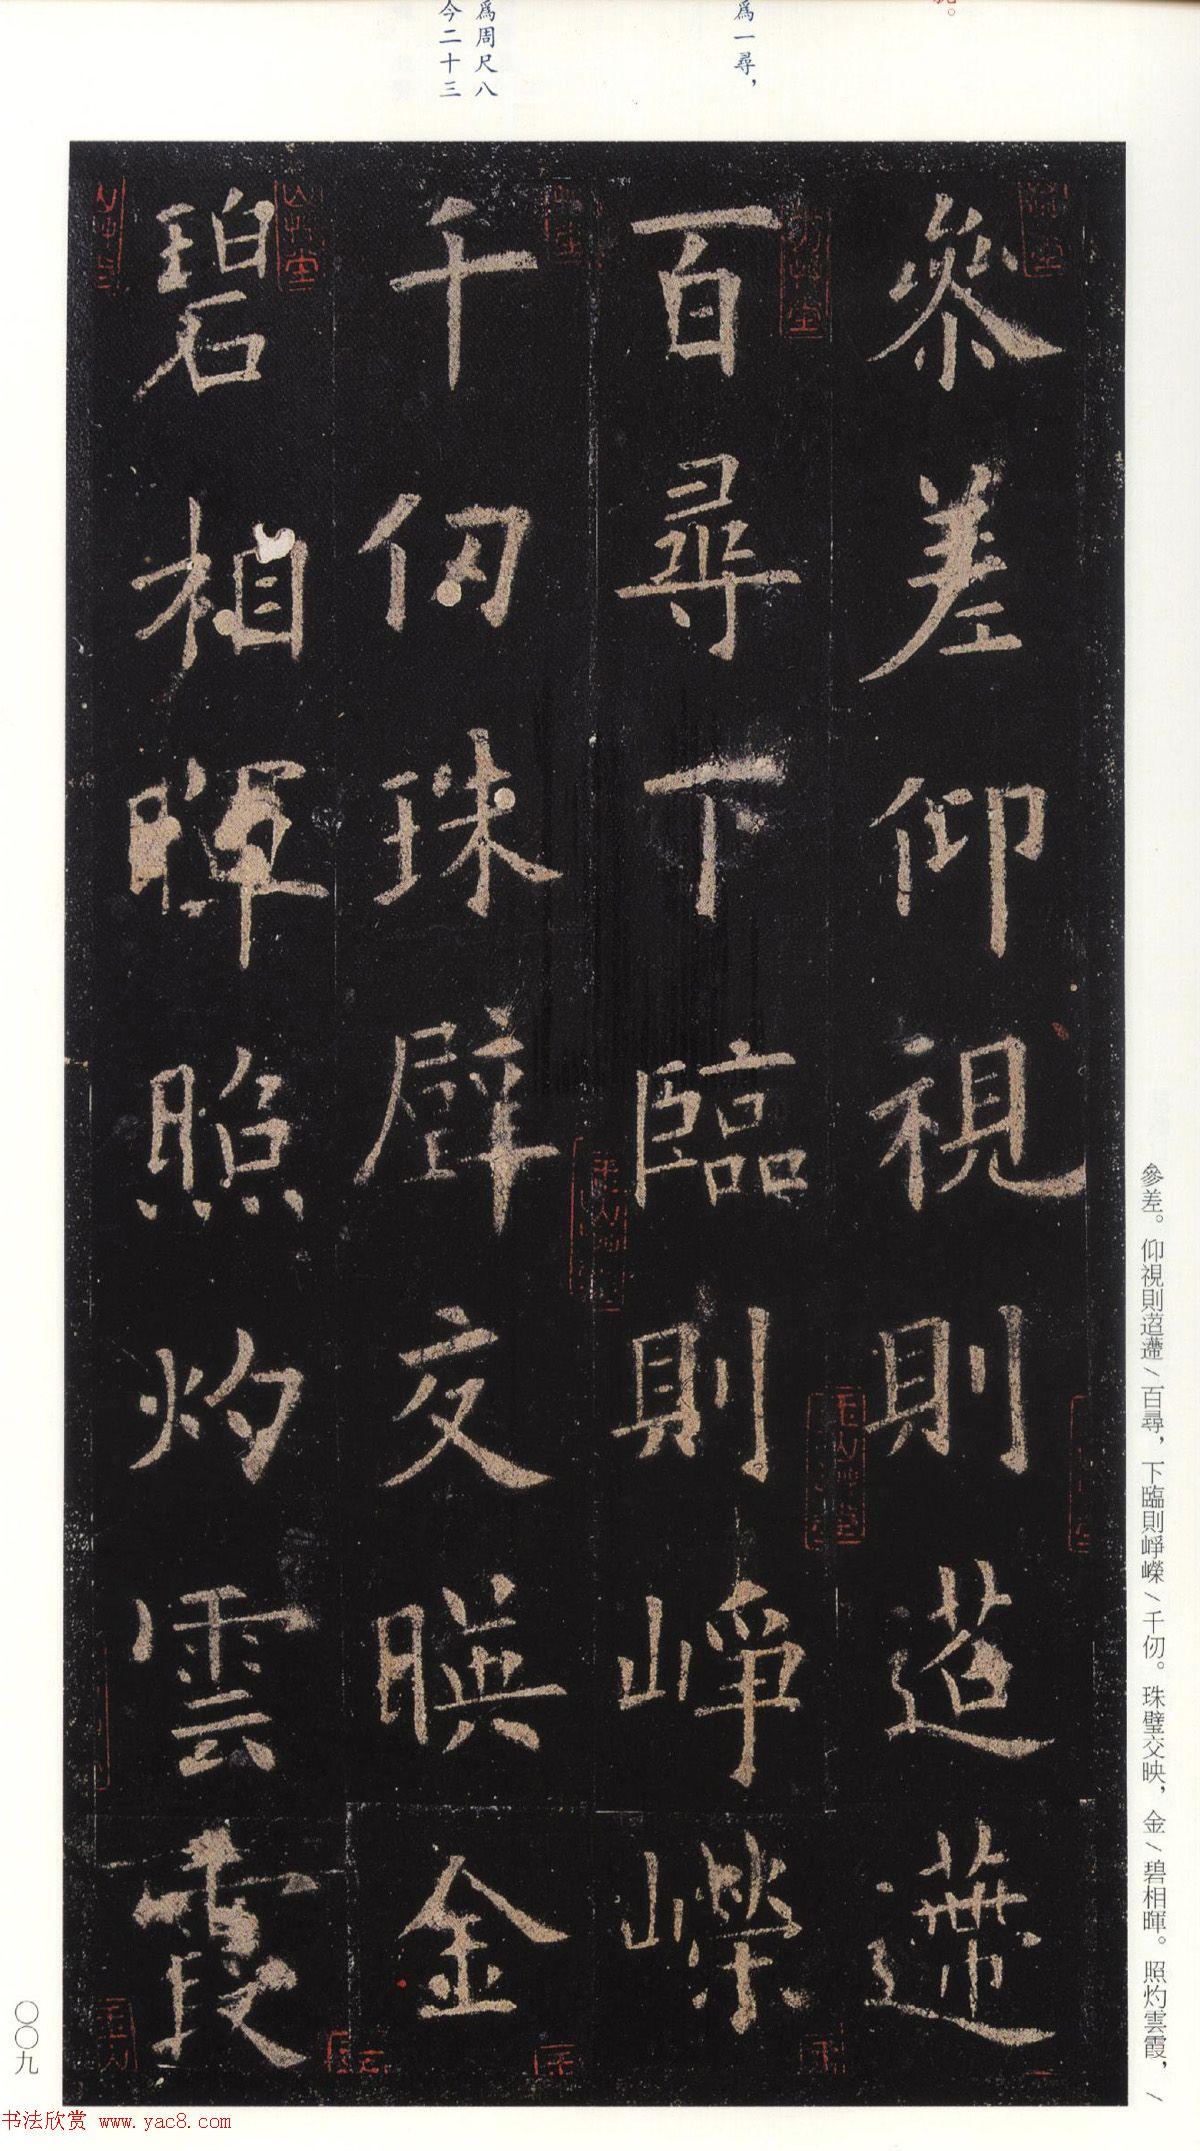 爲一尋，
爲周尺八
今二十三
參差仰視則迢遰
百尋下臨則崢嶸
千仞珠璧交映金
碧相暉照灼雲霞
參差。仰視則迢遰／百尋，下臨則崢嶸／千仞。珠璧交映，金／碧相暉。照灼雲霞，／
〇〇九
书法欣赏 www.yac8.com